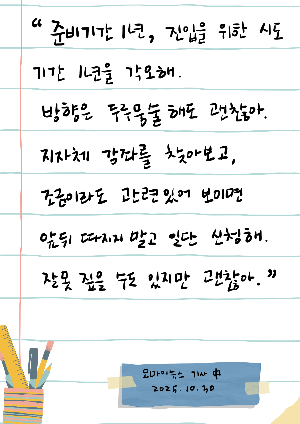 “준비기간 1년, 진입을 위한 시도
기간 1년을 각오해.
방향은 두루뭉술 해도 괜찮아.
지자체 강좌를 찾아보고,
조금이라도 관련 있어 보이면
앞뒤 따지지 말고 일단 신청해.
잘못 짚을 수도 있지만 괜찮아.”
오마이뉴스 기사 中
2025.10.30